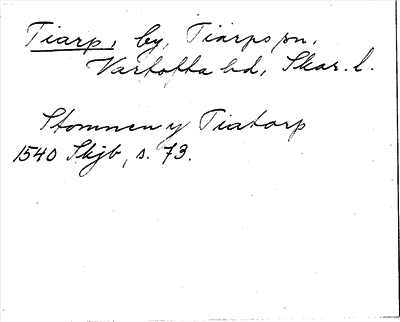 Tiarp, by, Tiarps sn,
Vartofta hd, Skar. l.
Stommen y Tiatorp
1540 Skjb, s. 73.